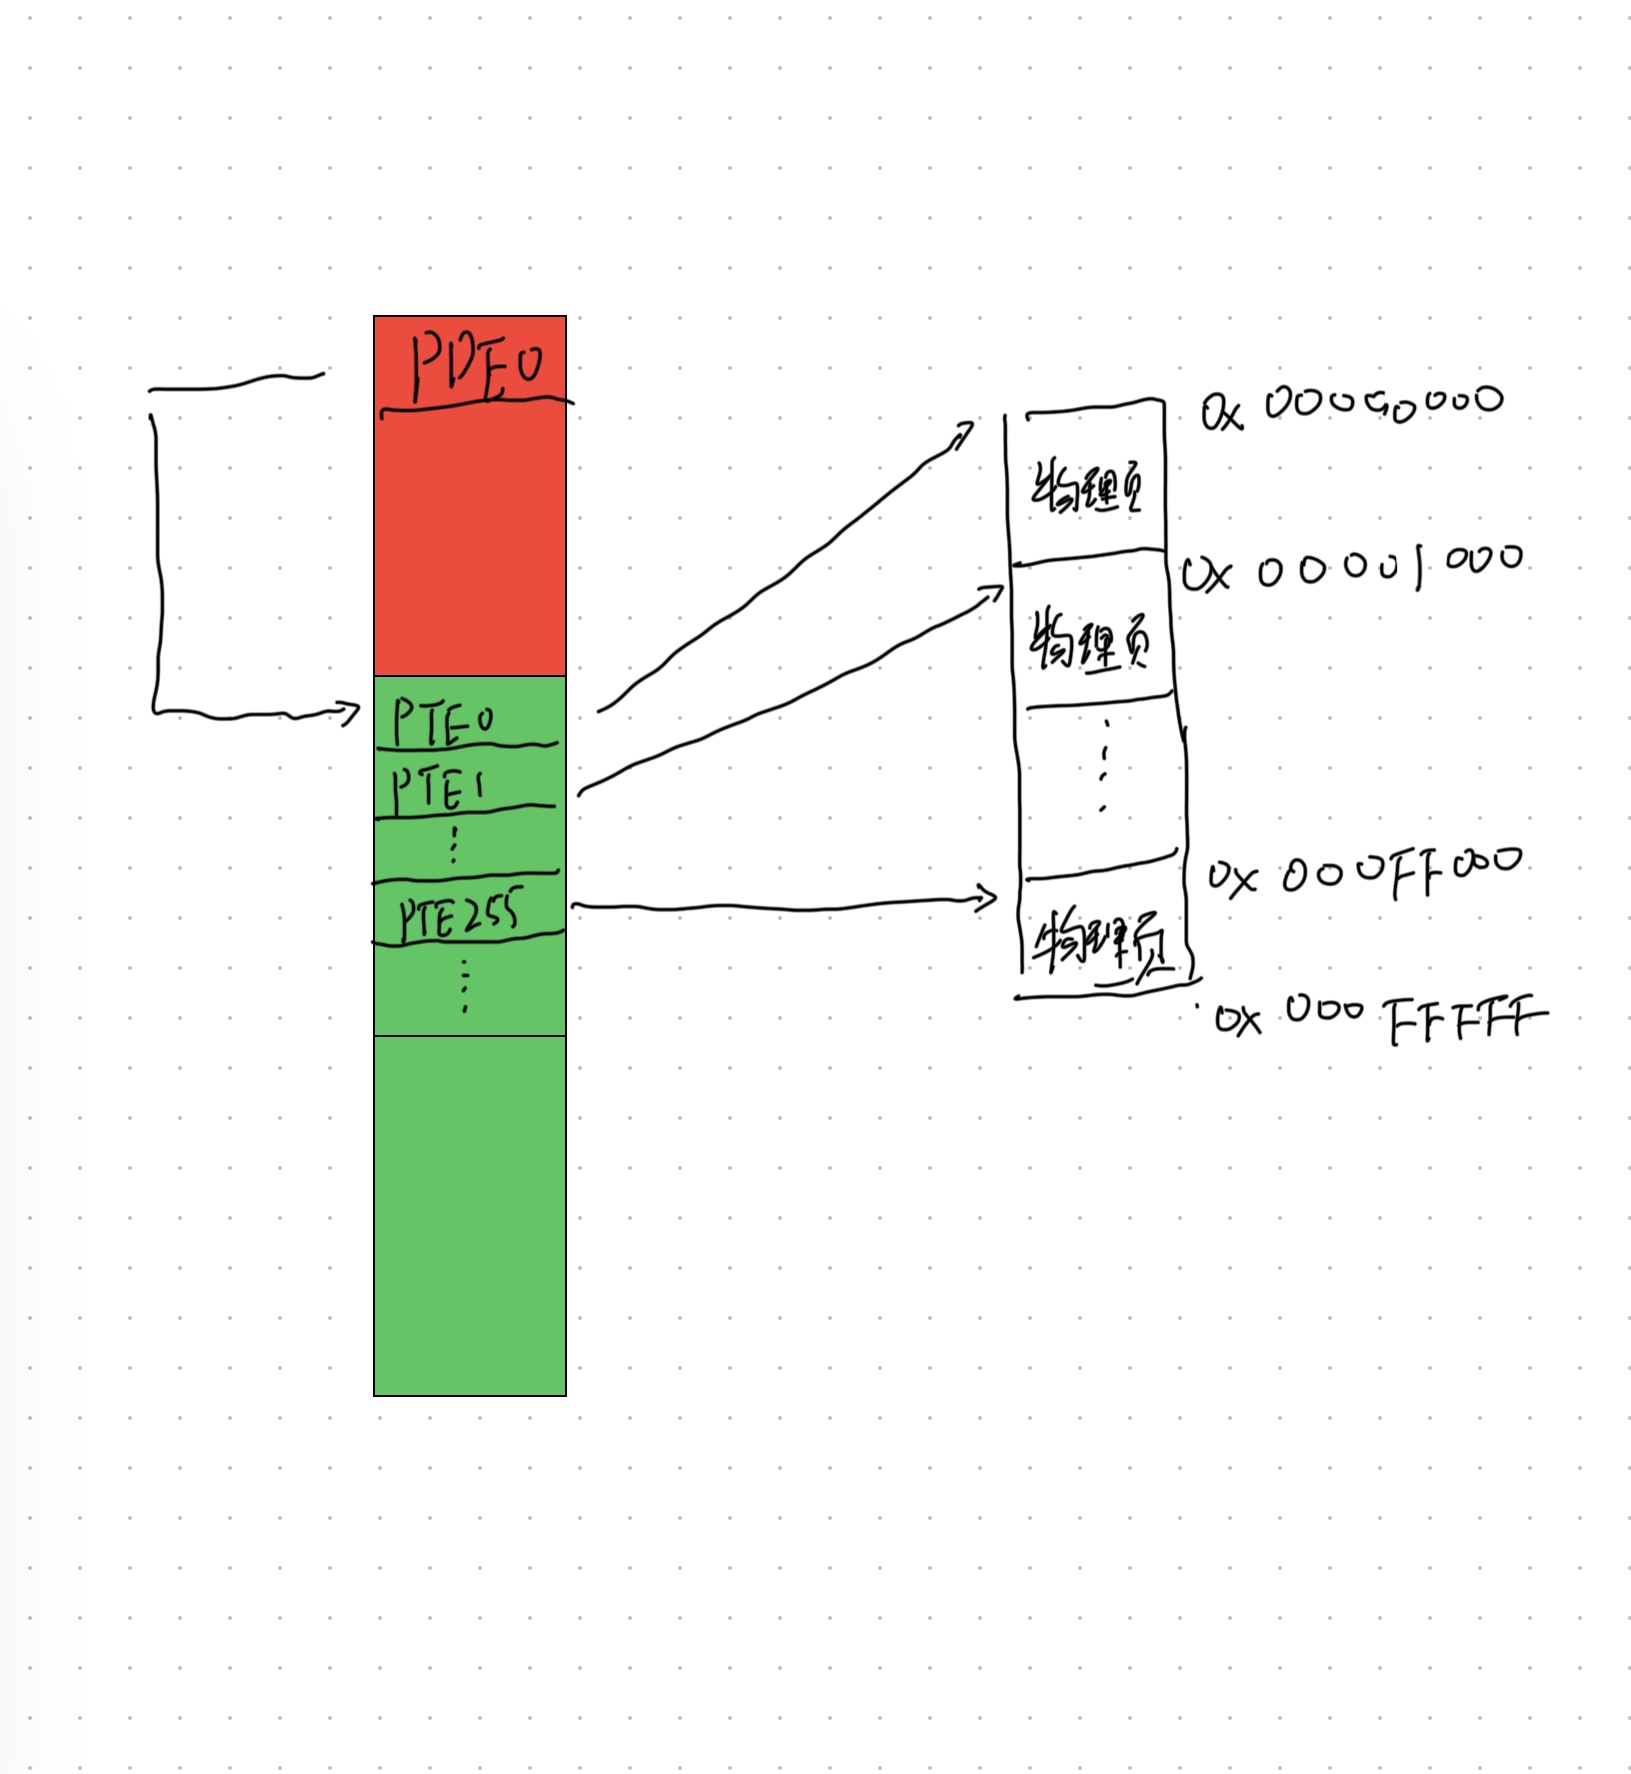 PDE0
PTE0
PTE1
⋮
PTE255
⋮
0x 00000000
物理页
0x 00001000
物理页
⋮
0x 000FF000
物理页
0x 000FFFFF